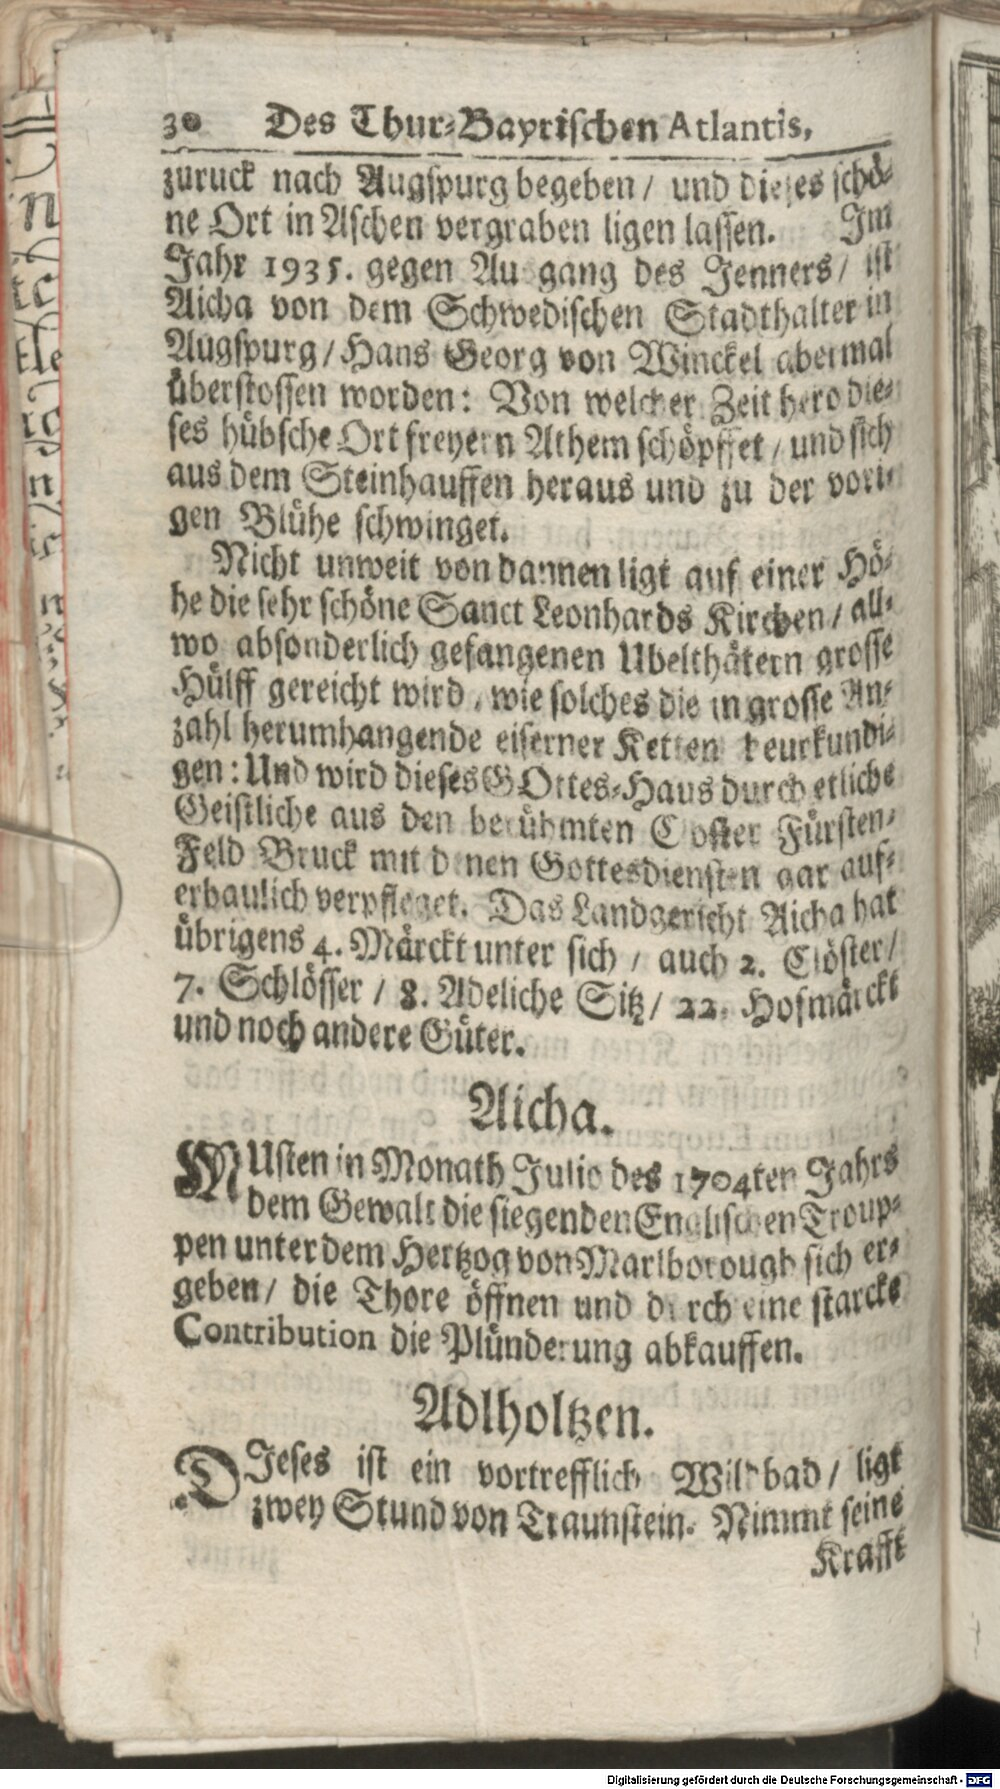 30 Des Thur-Bayrischen Atlantis,
zuruck nach Augspurg begeben / und dieses schö-
ne Ort in Aschen vergraben ligen lassen. Im
Jahr 1935. gegen Ausgang des Jenners / ist
Aicha von dem Schwedischen Stadthalter in
Augspurg / Hans Georg von Winckel abermal
überstossen worden: Von welcher Zeit hero die-
ses hübsche Ort freyern Athem schöpffet / und sich
aus dem Steinhauffen heraus und zu der vori-
gen Blühe schwinget.
Nicht unweit von dannen ligt auf einer Hö-
he die sehr schöne Sanct Leonhards Kirchen / all-
wo absonderlich gefangenen Ubelthätern grosse
Hülff gereicht wird, wie solches die in grosse An-
zahl herumhangende eiserner Ketten beurkundi-
gen: Und wird dieses GOttes-Haus durch etliche
Geistliche aus den berühmten Closter Fürsten-
Feld Bruck mit denen Gottesdiensten gar auf-
erbaulich verpfleget. Das Landgericht Aicha hat
übrigens 4. Märckt unter sich / auch 2. Clöster /
7. Schlösser / 8. Adeliche Sitz / 22. Hofmärckt
und noch andere Güter.
Aicha.
MUsten in Monath Julio des 1704ten Jahrs
dem Gewalt die siegenden Englischen Troup-
pen unter dem Hertzog von Marlborough sich er-
geben / die Thore öffnen und durch eine starcke
Contribution die Plünderung abkauffen.
Adlholtzen.
DIeses ist ein vortrefflich Wildbad / ligt
zwey Stund von Traunstein. Nimmt seine
Krafft
Digitalisierung gefördert durch die Deutsche Forschungsgemeinschaft - DFG